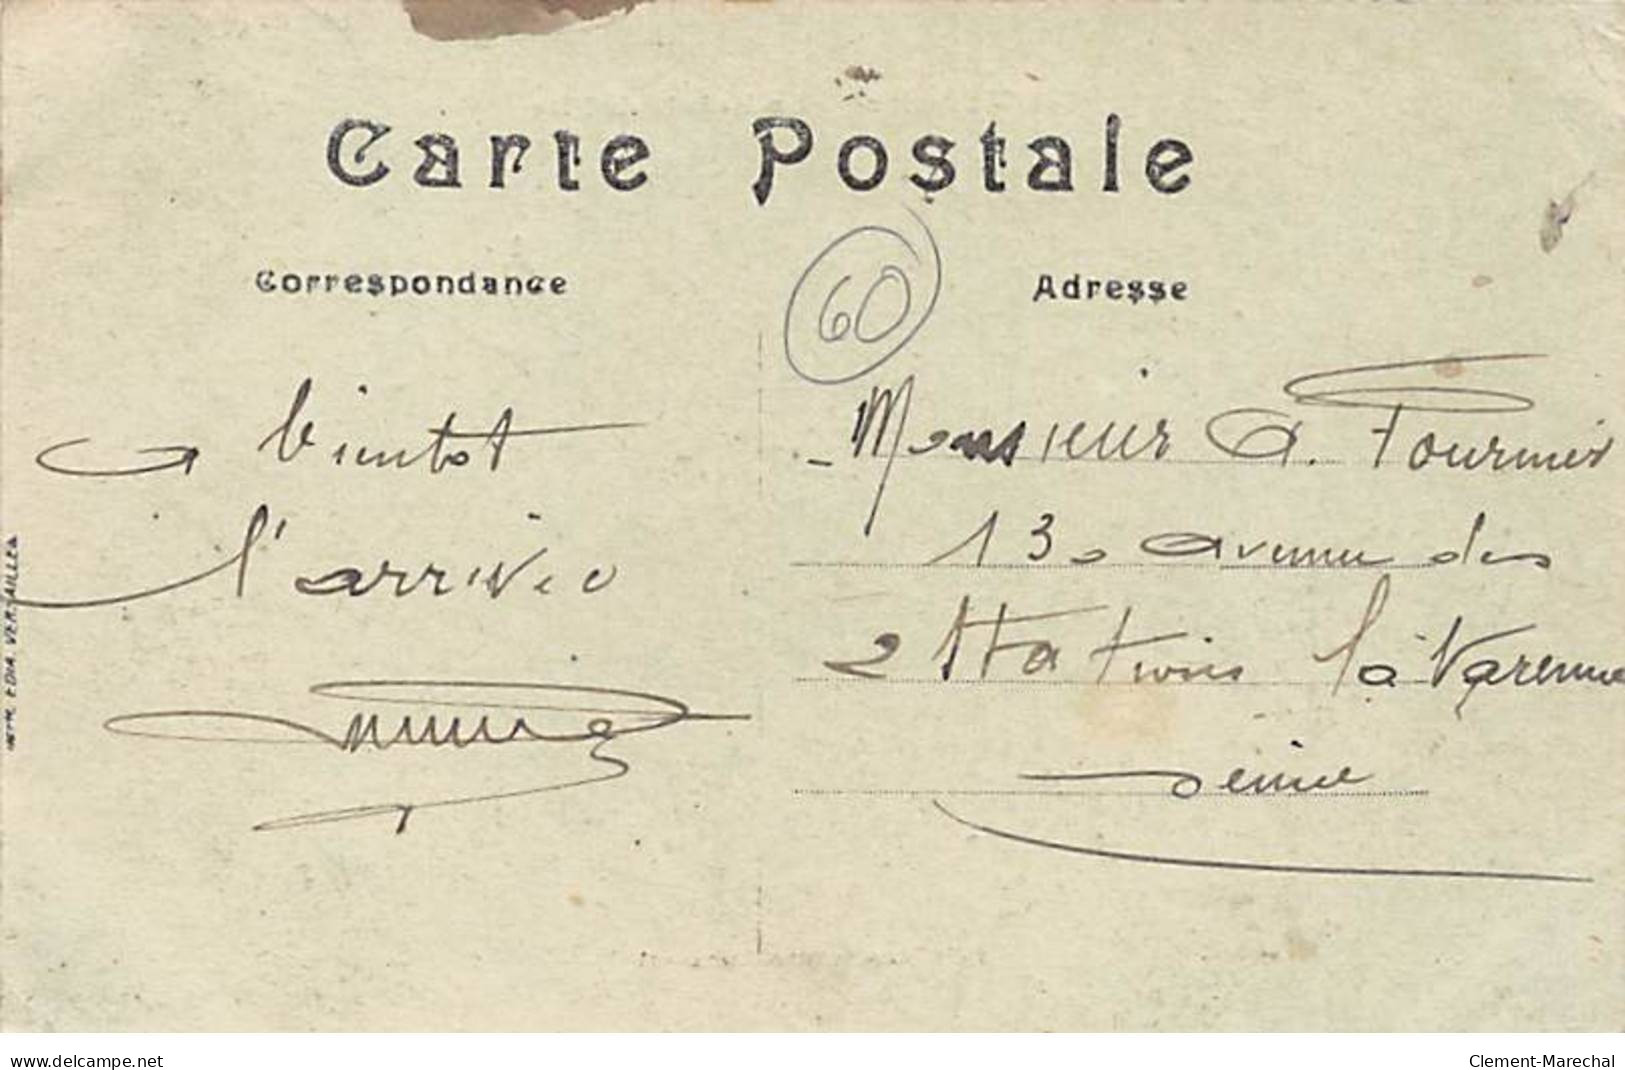 Carte Postale
Correspondance
Adresse
60
a bientot
l'arrivée
Monsieur A. Fournier
13, avenue des
2 Stations la Varenne
Seine
delcampe.net
Clement-Marechal